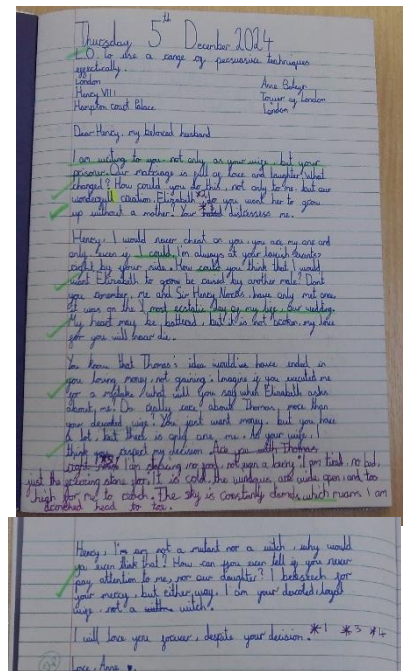 Thursday 5th December 2024
L.O. to use a range of persuasive techniques
effectively.
London
Henry VIII
Hampton Court Palace
Anne Boleyn
Tower of London
London
Dear Henry, my beloved husband
I am writing to you, not only as your wife, but your
prisoner. Our marriage is full of love and laughter. What
changed? How could you do this, not only to me, but our
wonderfull creation, Elizabeth? do you want her to grow
up without a mother? Your distresses me.
Henry, I would never cheat on you, you are my one and
only, even if I could, I'm always at your lavish events,
right by your side. How could you think that I would
want Elizabeth to grow be caused by another male? Don't
you remember, me and Sir Henry Norris, have only met once.
It was on the most ecstatic day of my life, our wedding.
My heart may be battered, but it is not broken, my love
for you will never die.
You know that Thomas's idea would've have ended in
you losing money, not gaining. Imagine if you executed me
for a mistake, what will you say when Elizabeth asks
about me? Do really care about Thomas, more than
your devoted wife? You just want money, but you have
a lot, but there is only one me. As your wife, I
think you respect my decision. Are you with Thomas
I am sleeping no not even a I am tired, no bed,
just the freezing stone floor. It is cold, the windows are wide open, and too
high for me to reach. The sky is constantly which means I am
head to toe.
Henry, I'm am not a mutant nor a witch, why would
you even think that? How can you even tell if you never
pay attention to me, nor our daughter? I beseech for
your mercy, but either way, I am your devoted, loyal
wife, not a witch.
I will love you forever, despite your decision. *1 *3 *4
Love, Anne